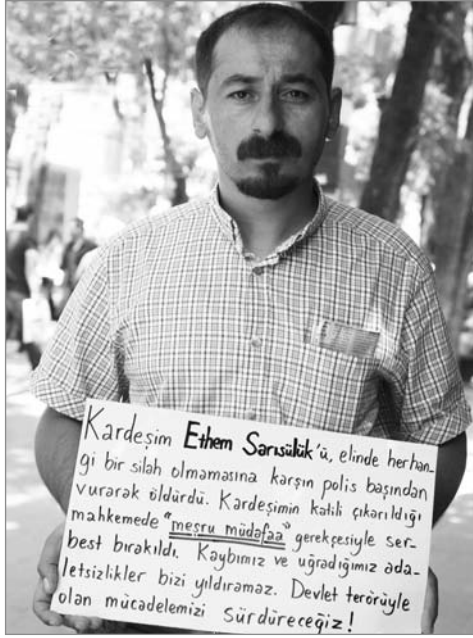 Kardeşim Ethem Sarısülük'ü, elinde herhan-
gi bir silah olmamasına karşın polis başından
vurarak öldürdü. Kardeşimin katili çıkarıldığı
mahkemede "meşru müdafaa" gerekçesiyle ser-
best bırakıldı. Kaybımız ve uğradığımız ada-
letsizlikler bizi yıldıramaz. Devlet terörüyle
olan mücadelemizi sürdüreceğiz!